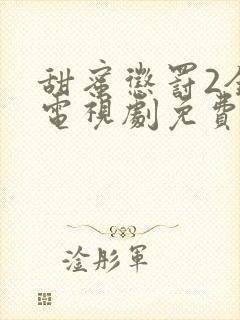 甜蜜懲罰2
電視劇免費
淦彤軍